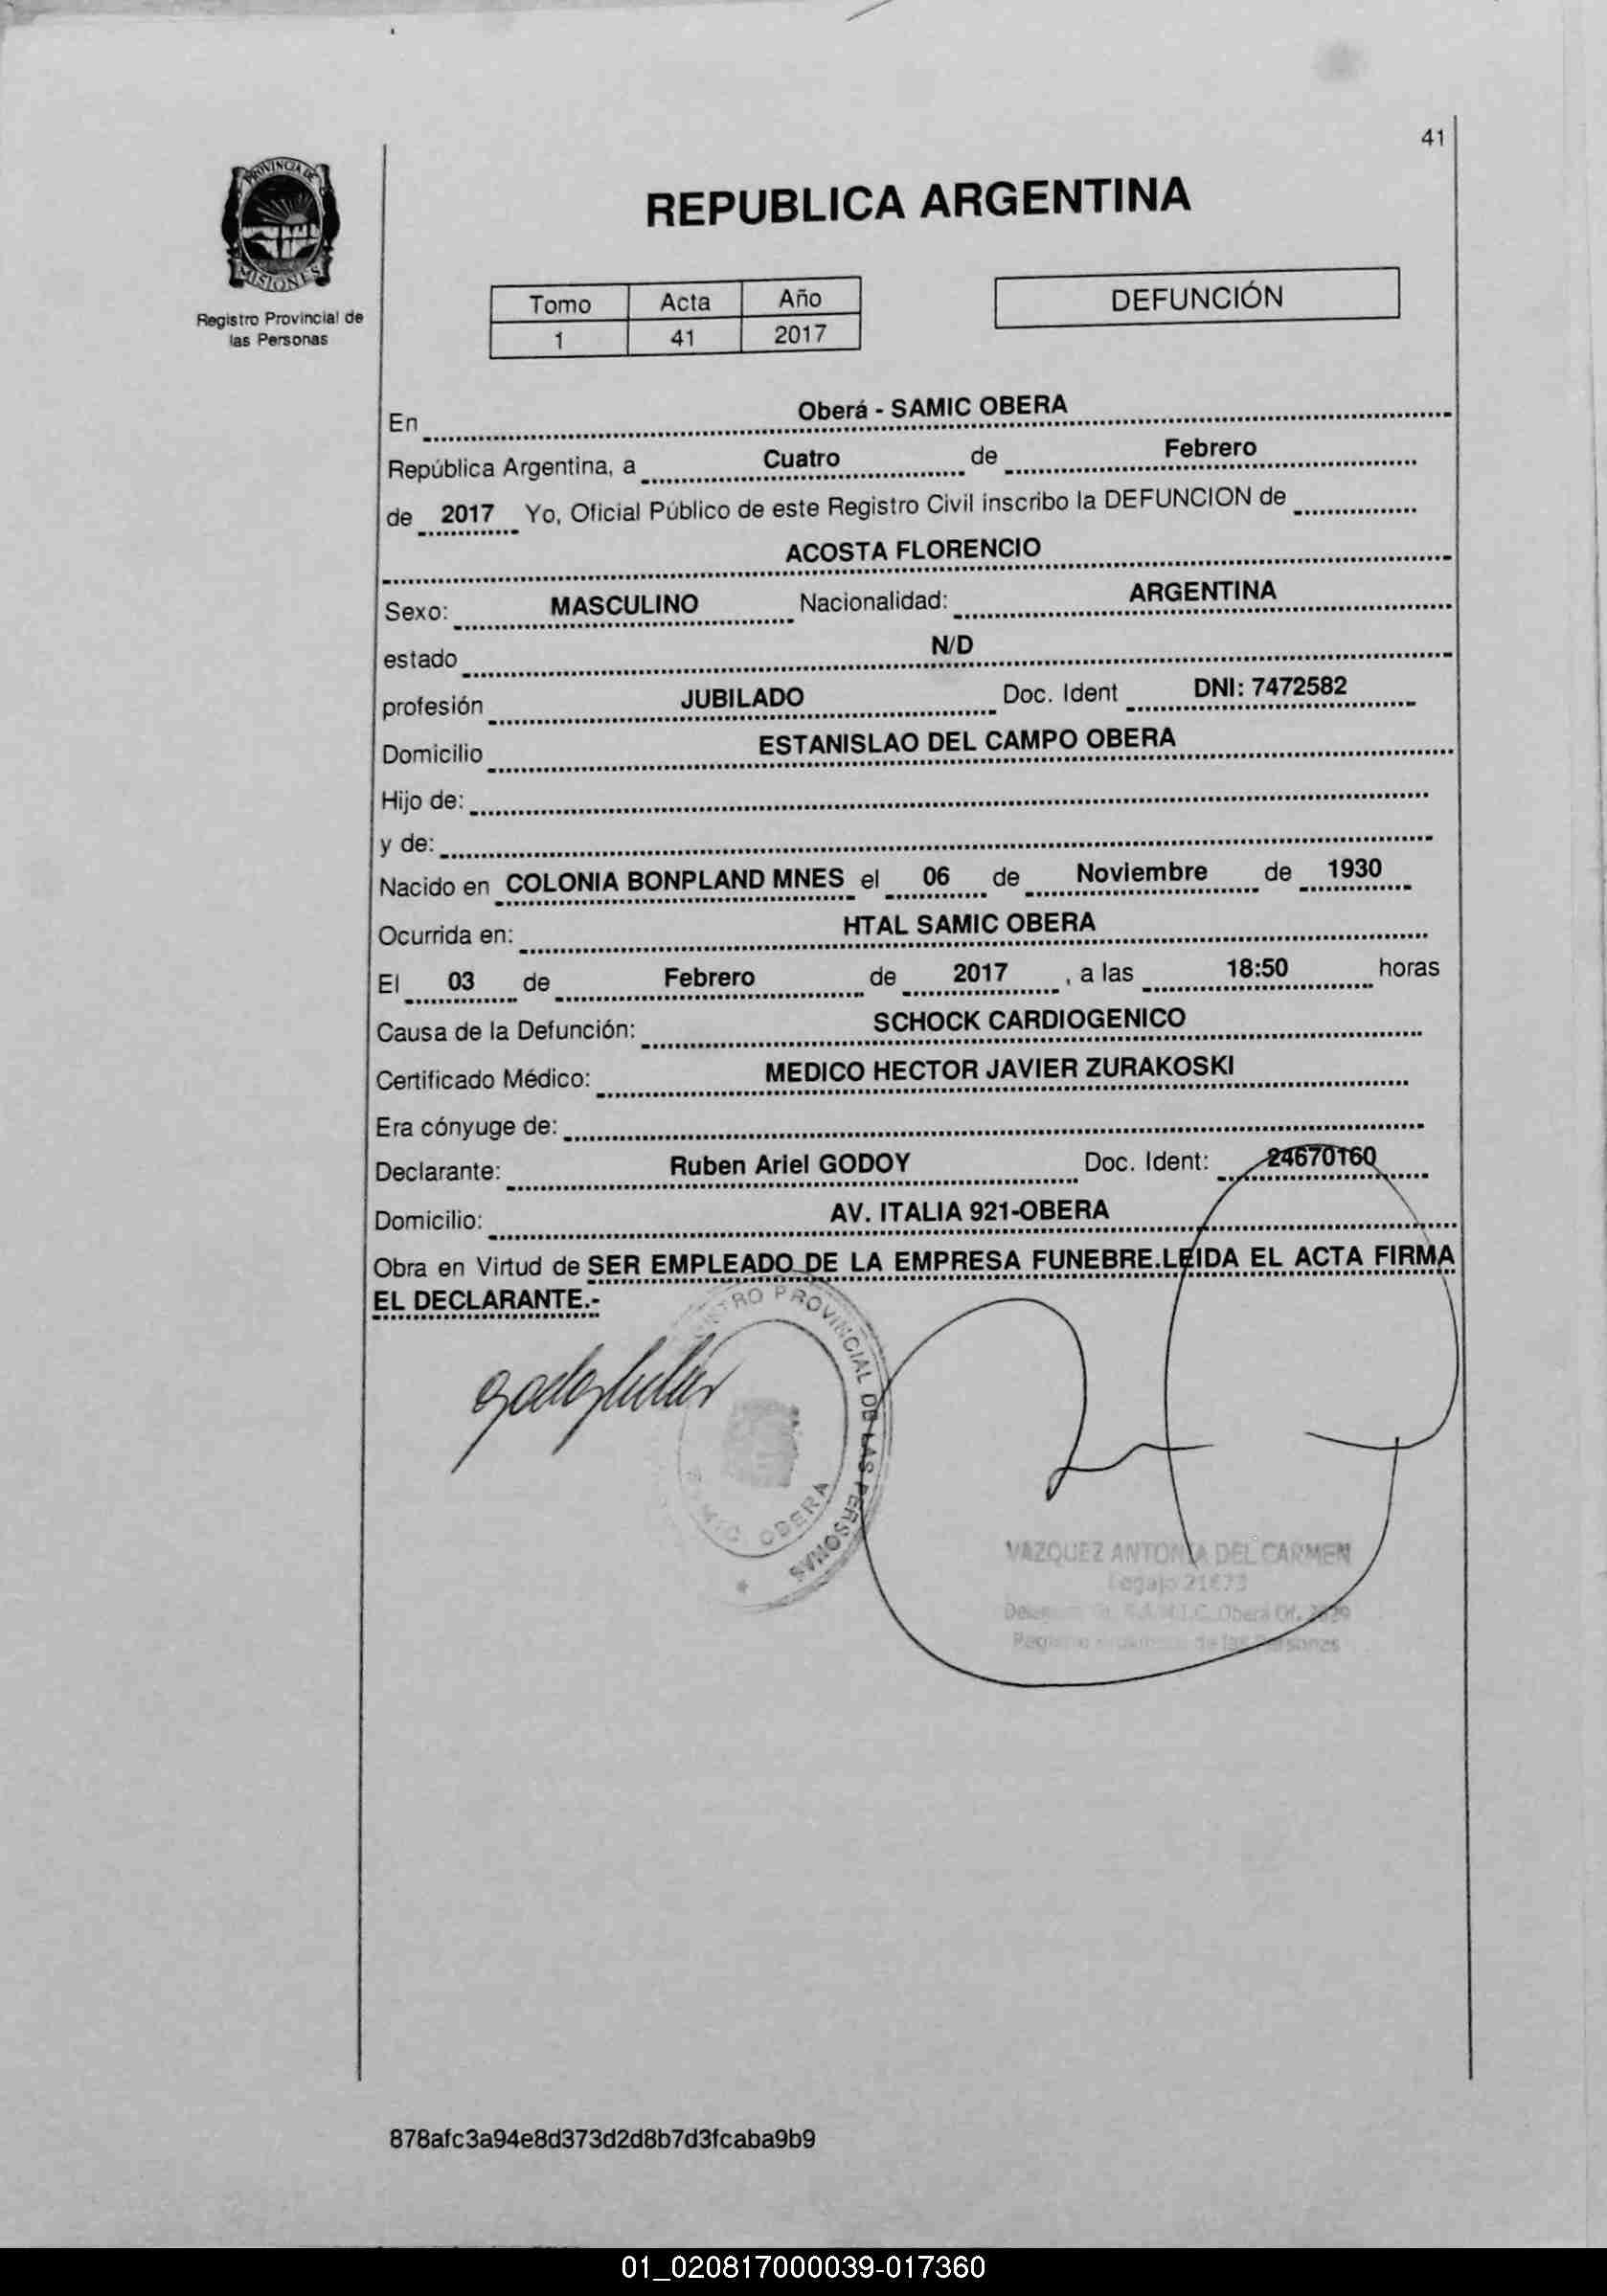 41
PROVINCIA DE
MISIONES
Registro Provincial de
las Personas
REPUBLICA ARGENTINA
Tomo Acta Año
1 41 2017
DEFUNCIÓN
En Oberá - SAMIC OBERA
República Argentina, a Cuatro de Febrero
de 2017 Yo, Oficial Público de este Registro Civil inscribo la DEFUNCION de
ACOSTA FLORENCIO
Sexo: MASCULINO Nacionalidad: ARGENTINA
estado N/D
profesión JUBILADO Doc. Ident DNI: 7472582
Domicilio ESTANISLAO DEL CAMPO OBERA
Hijo de:
y de:
Nacido en COLONIA BONPLAND MNES el 06 de Noviembre de 1930
Ocurrida en: HTAL SAMIC OBERA
El 03 de Febrero de 2017 , a las 18:50 horas
Causa de la Defunción: SCHOCK CARDIOGENICO
Certificado Médico: MEDICO HECTOR JAVIER ZURAKOSKI
Era cónyuge de:
Declarante: Ruben Ariel GODOY Doc. Ident: 24670160
Domicilio: AV. ITALIA 921-OBERA
Obra en Virtud de SER EMPLEADO DE LA EMPRESA FUNEBRE.LEIDA EL ACTA FIRMA
EL DECLARANTE.-
PROVINCIAL DE LAS PERSONAS
OBERA
VAZQUEZ ANTONIA DEL CARMEN
Legajo
Oberá Of.
de las Personas
878afc3a94e8d373d2d8b7d3fcaba9b9
01_020817000039-017360